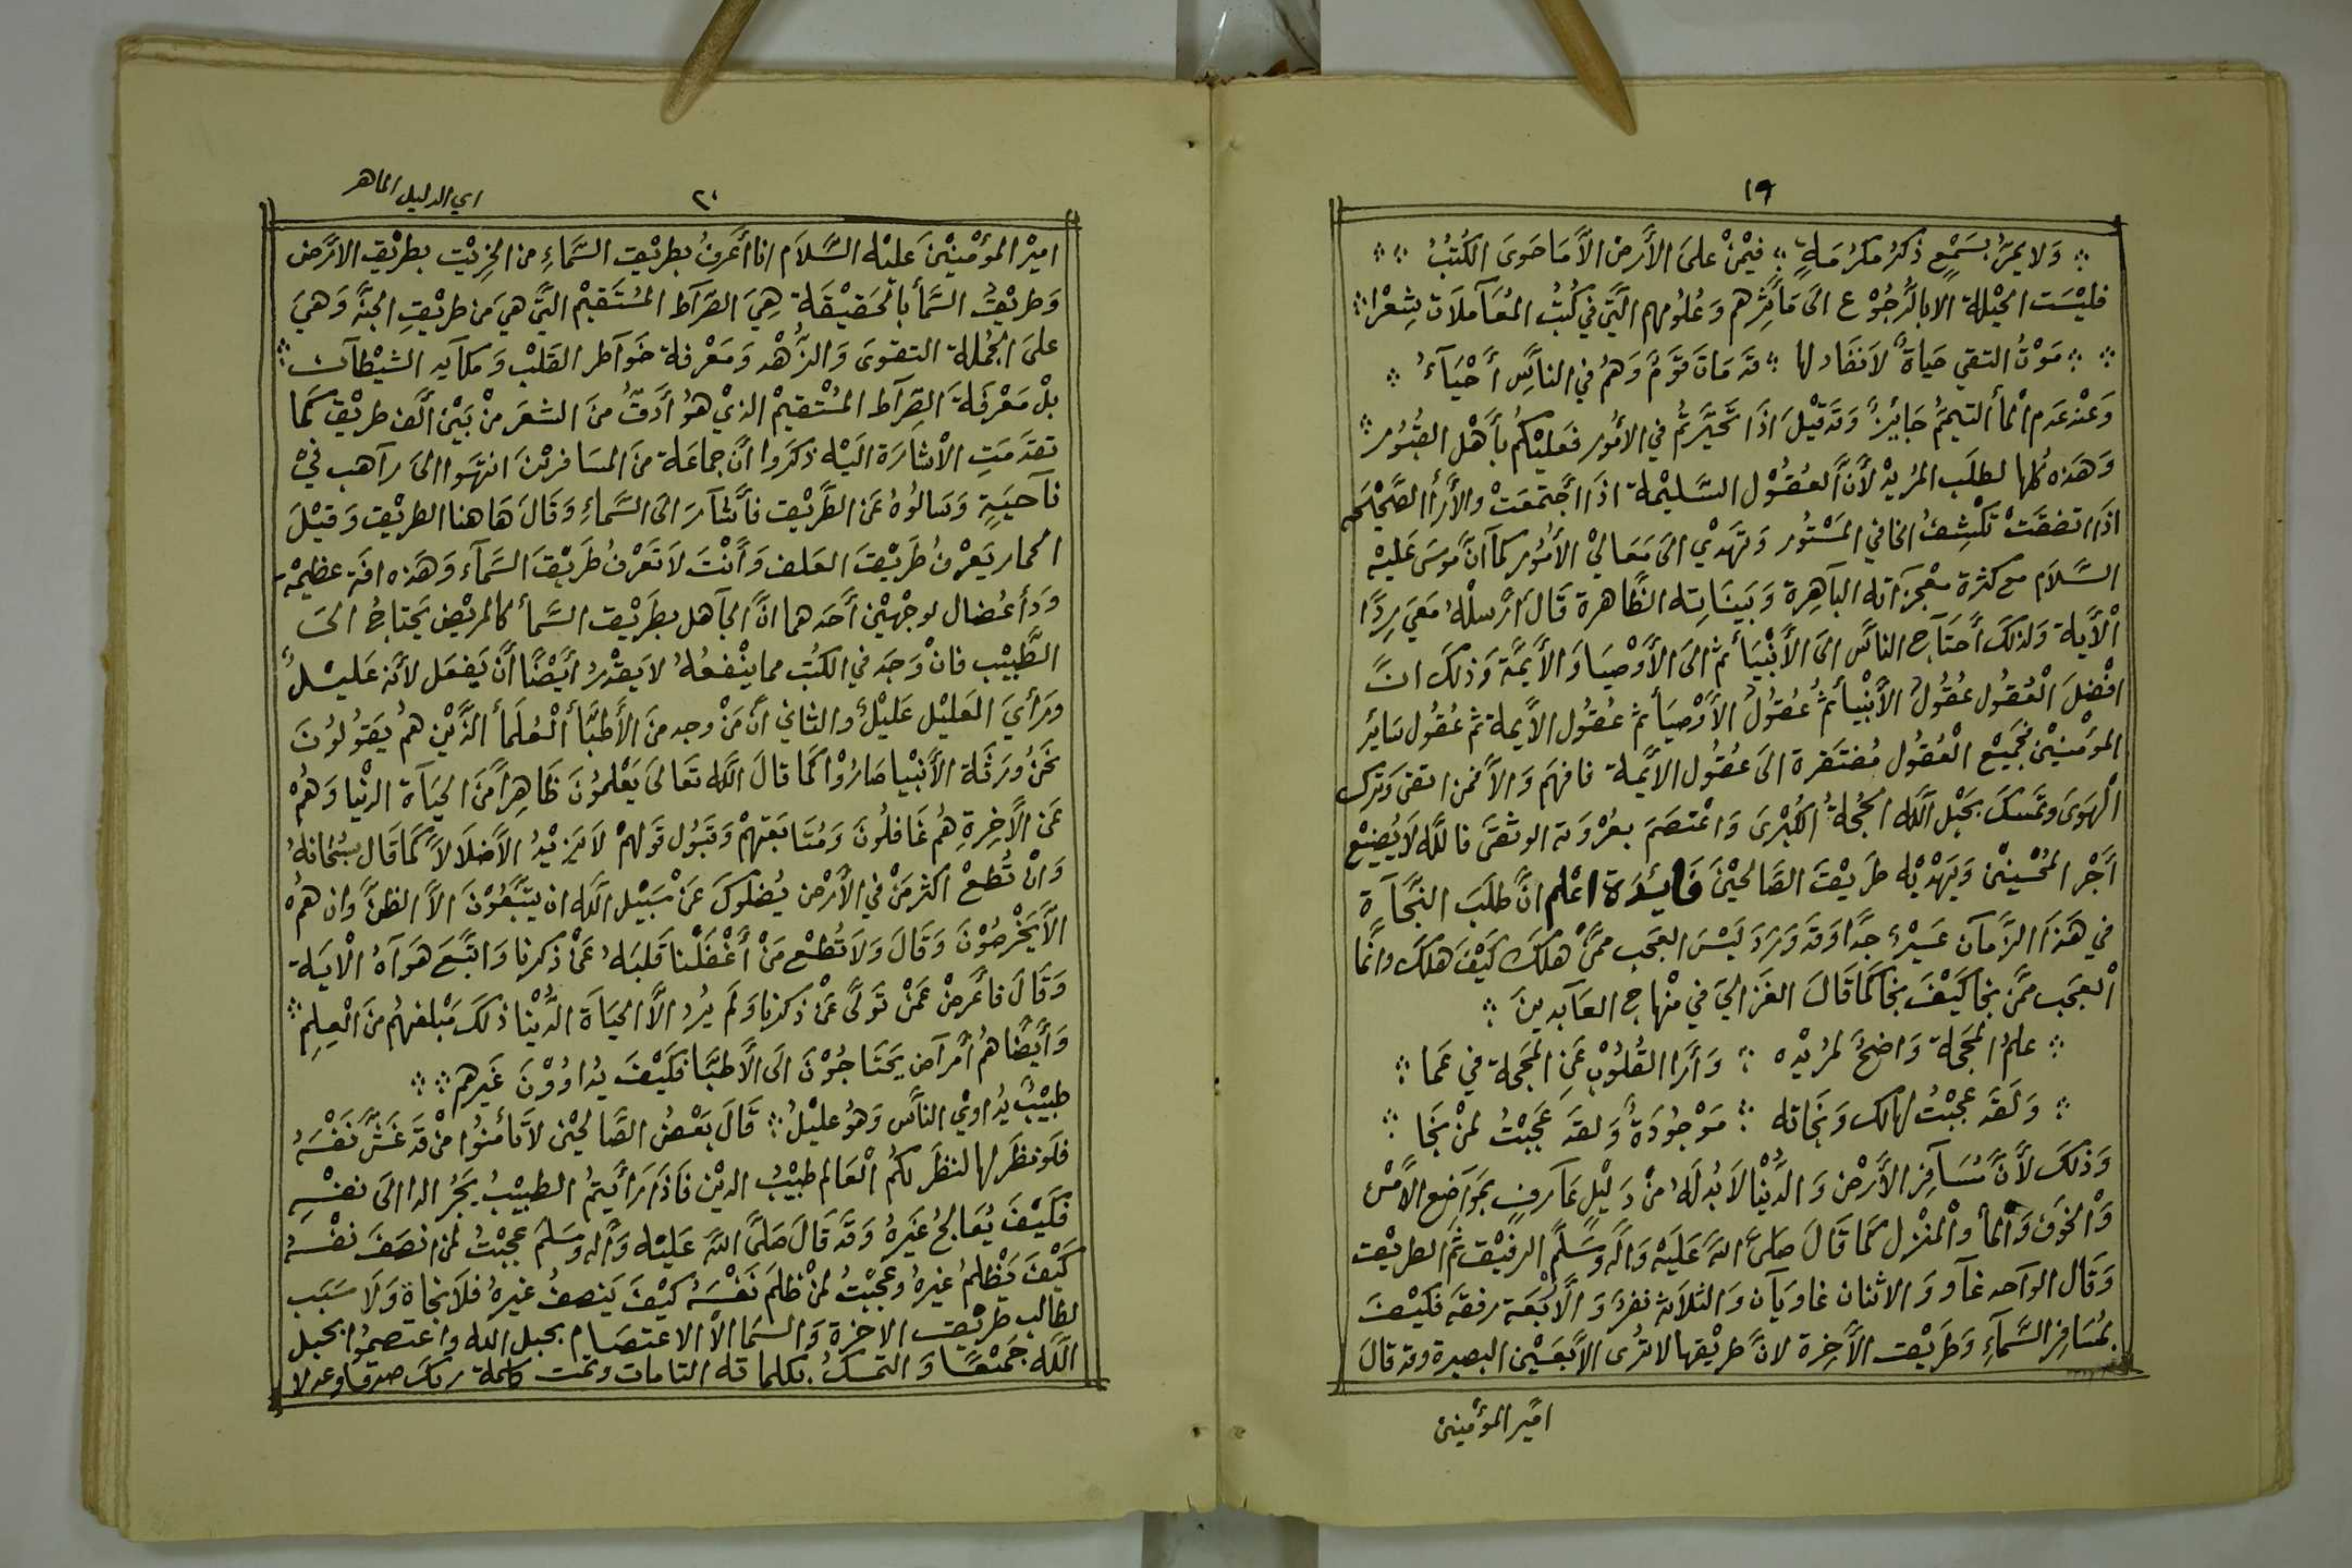 ١٩
؞ وَلا يمَرُّ بسَمْعِ ذكرُ مكرُمَةٍ ؞ فيْمَنْ علىَ الأَرضِ الاَّ مَا حَوىَ الكُتبُ ؞ ؞
فليْسَت الحيْلة الا بالرُّجُوْع الىَ مَأثرهم وَعُلُومهم الَّتي في كُتبُ المُعَآملاَت شِعْرا ؞
؞ ؞ مَوْتُ التقي حَياةٌ لاَ نفَاد لها ؞ قَد مَاتَ قوَمٌ وَهُم في الناَّسِ أَحْيَآءُ ؞
وَعنْد عَدم الْمأ التيمّمُ جَايزٌ وَقَد قيْلَ اذَا تَحَيَّرتُم في الأمُور فعَليْكم بأَهْل القبُور ؞
وَهَذه كُلها لطلَب المرُيدْ لأَنَّ العُقُوْل السَّليْمة اذَا اجْتمَعَتْ والأَرأ الصَّحيْحَه
اذَا اتفقَتْ تكْشِفُ الخافي المَسْتُور وَتهَدْي الىَ مَعَاليْ الأُمُور كمآ انَّ مُوسَى عَليْه
السَّلاَم مع كثرة معْجزَاته البآهِرة وَبَينَاتِه الظَّاهرة قَالَ ارْسلْهُ مَعيَ ردًا
الْآية وَلذلكَ أَحتَآج الناَّس الىَ الأَنْبيَأ ثم الىَ الأَوْصيَا وَالأَيمَّة وَذلكَ انَّ
افْضلَ الْعُقُول عُقُولُ الأَنْبيأ ثمُ عُقُولُ الأَوْصيَأ ثمُ عُقُول الأيمة ثم عُقُول سَاير
المؤمنِيْن فجَميْع الْعُقُول مُفتَقرة الىَ عُقُول الأيمة فافهَم وَالاَّ فمن اتقىَ وَترك
الْهوَىَ وَتمسَّكَ بحَبْل اللَّه الحُجَةُ الكُبْرىَ وَاعْتصَمَ بعُرْوَته الوثقىَ فاللَّه لاَ يُضِيْع
أَجْر المحُسْنِيْن وَيَهْدْيْه طَريْقَ الصَّالحيْنَ فَائِدَة اعْلم انَّ طلَبَ النَّجَآة
في هَذَا الزَّمآن عَسيْرٌ جدًا وَقد وَرَدَ لَيْسَ العجَب ممَّنْ هلكَ كيَْفَ هلَك وانَّما
الْعجَب ممَّن نجَا كيَْفَ نجَا كمَا قَالَ الغَزاليَ في منْهاج العَآبدِينَ ؞
؞ علمُ المحَجة وَاضِحٌ لمرُيْدِه ؞ وَأَرَا القُلُوْبَ عَنِ المحَجة في عَما ؞
؞ وَلَقَد عجبْتُ لهالك وَنجَاته ؞ مَوْجُودَةٌ وَلقَد عَجَبْتُ لمنْ نجَا ؞
وَذلكَ لأَنَّ مُسَآفِر الأَرْض وَالدُّنْيَا لاَ بُد لَهُ منْ دَليْلٍ عَارفٍ بموَاضع الأَمْن
وَالخوَف وَالمأ والمنْزل كمَا قَالَ صَلىَّ اللَّه عَلَيْه وَآله وَسَلَّم الرفيْق ثم الطريْق
وَقَال الوَآحد غآو وَالاثنان غاويَآن وَالثلاَثة نفرٌ وَالأَرْبَعة رفقَه فكيْفَ
بمُسَافِر السَّمَآءِ وَطَريْق الأَخِرة لانَّ طريْقها لا تُرى الاَّ بعَيْن البصِيرة وقد قالَ
امْير المؤمنين
٢٠
اي الدليل الماهر
اميْر المؤمْنِيْنَ عَليْه السَّلاَم انا أَعرَفُ بطريْق السَّماءِ من الخِرّيْت بطريْق الأرَْض
وَطريْقُ السَّمأ بالحَقيْقَة هِيَ الصّرَآط المسُتَقيْم الَّتيْ هيَ من طريْقِ الجنَّة وَهيَ
علىَ الجُملة التقوىَ وَالزُّهْد وَمَعْرفة خَوآطر القَلْبِ وَمكآيد الشيْطآن ؞
بلْ مَعْرفَةَ الصّرآط المسُتْقيمْ الذيْ هوُ أَدَقُّ منَ الشعَر منْ بَيْن ألَف طريْق كمَا
تقدَمَتِ الاشارَة اليَْه ذكَروا أنَّ جماعَة منَ المسَافريْنَ انتهَوا الىَ رآهب فيْ
نآحيَةٍ وَسَالوُهُ عَن الطَّريْق فأَشآرَ الىَ السَّماءِ وَقَالَ هَاهنا الطريْق وَقيْلَ
الحمار يَعْرفُ طَريْقَ العَلف وَأَنْتَ لاَ تَعْرفُ طَريْقَ السَّمآء وَهَذه افَة عظيْمة
وَدأ عُضال لوجْهيْن أَحَدهما انَّ الجآهل بطَريْق السَّمأ كالمريْض يَحتاجُ الىَ
الطَّبيْب فانْ وَجَد في الكتُب مما ينْفعُهُ لا يقدْرُ أَيْضًا أَنْ يَفعَل لأنه عَليْلٌ
وَرَأيَ العَليْل عَليْلٌ والثاني أنَّ مَنْ وجد منَ الأَطبَّأ الْعُلمَأ الذَّيْن هُم يَقوُلوُنَ
نحَنُ وُرَثَة الأَنْبيْا صَارُوْا كمَا قَالَ اللَّه تعَالىَ يَعْلمُونَ ظَاهِراً منَ الحيَآة الدنْيا وَهُم
عَن الأَخِرةِ هُم غَافلُونَ وَمُتَابعَتهمْ وَقبُول قَولهمْ لاَ يَزيْدُ الاَّ ضلاَلاً كمَا قَال سبْحَانهُ
وَانْ تُطعْ اكثر مَنْ في الأرَْض يُضلوكَ عَن سَبيْل اللَّه ان يتبَّعُوْنَ الاَّ الظنَّ وَان هُم
الاَّ يَخْرصُوْنَ وَقَالَ وَلاَ تُطعْ مَنْ أَغْفَلْنا قَلبَهُ عَنْ ذكرنا وَاتَّبَعَ هَوَآهُ الأيَة
وَقَالَ فأَعْرضْ عَمَّنْ تَولَّى عَنْ ذكرنا وَلَم يُرد الاَّ الحيَاة الدُّنْيا ذلكَ مَبْلغهُم منَ الْعِلِم ؞
وَأَيْضًا هُم أمرَآض يَحتَاجُوْنَ الىَ الاَطبَّا فكَيْفَ يُداوُوْنَ غَيرهم ؞ ؞
طبيْبٌ يُداويْ الناَّس وَهُو عليْلُ ؞ قَالَ بَعْضُ الصَّالحيْن لاَ تَأمنُوا منْ قَد غَشَّ نَفْسَهُ
فلَو نظَر لها لنظَر لكمُ الْعَالم طبيْبُ الديْن فَاذَا رَأَيتمُ الطبيْبُ يَجُر الدا الىَ نفسِْهِ
فكَيْفَ يُعَالجُ غَيرَهُ وَقَد قَالَ صَلىَّ اللَّه عَليْه وَآله وَسَلمَ عجبْتُ لمن انصَفَ نفْسَهُ
كَيْفَ يَظْلمُ غيرهُ وعجبْتُ لمنْ ظلمَ نَفْسَهُ كيَْفَ يَنصفُ غيرهُ فلاَ نجَاة وَلاَ سَبَب
لطالب طريْق الاخرة وَالسَما الاَّ الاعتصَام بحبل اللَّه واعتصمُوا بحبل
اللَّه جَميْعًا وَالتمسكُ بكلماته التامات وتمت كلمة ربك صدقا وعدلا